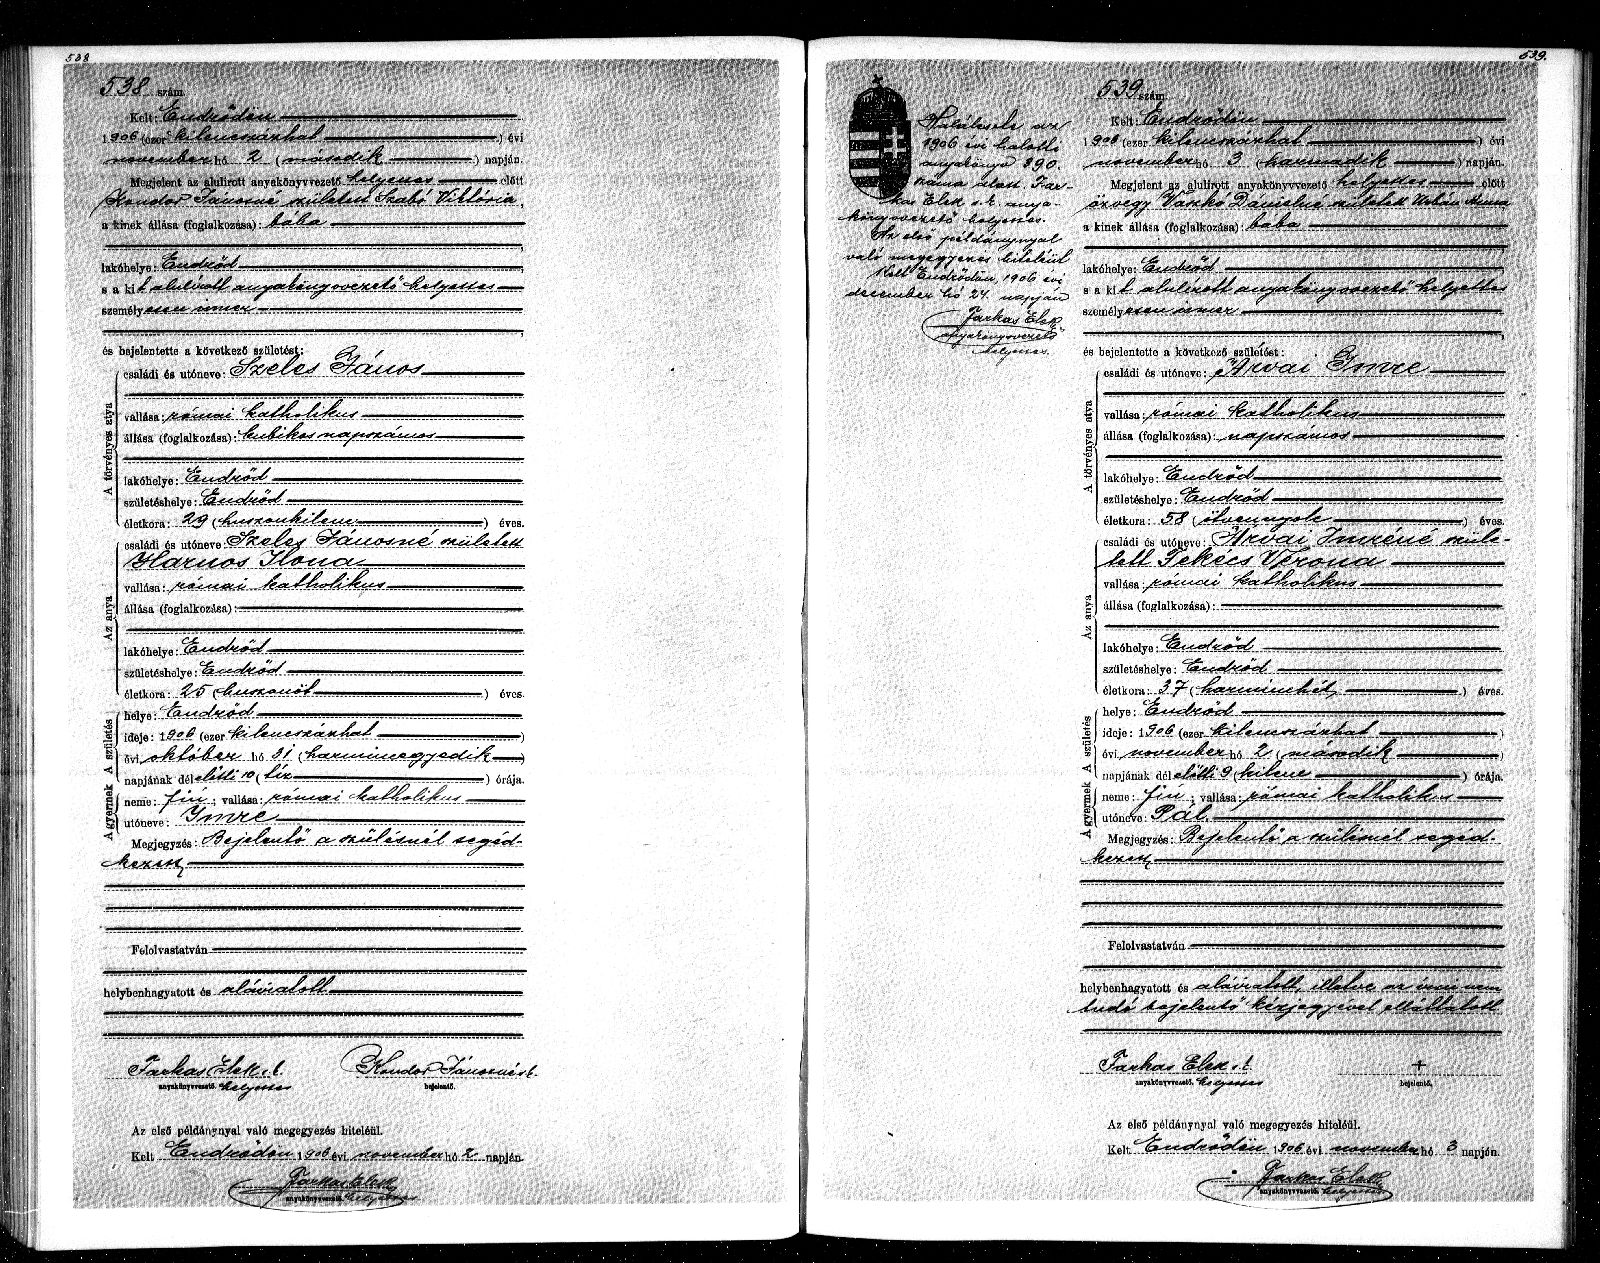 538
538 szám.
Kelt: Endrődön
1906 (ezer kilenczszázhat) évi
november hó 2 (második) napján.
Megjelent az alulirott anyakönyvvezető helyettes előtt
Kondor Jánosné született Szabó Viktória,
a kinek állása (foglalkozása): bába
lakóhelye: Endrőd
s a kit alulirott anyakönyvvezető helyettes
személyesen ismer
és bejelentette a következő születést:
A törvényes atya
családi és utóneve: Szeles János
vallása: római katholikus
állása (foglalkozása): kubikos napszámos
lakóhelye: Endrőd
születéshelye: Endrőd
életkora: 29 (huszonkilenc) éves.
Az anya
családi és utóneve: Szeles Jánosné született
Harnos Ilona
vallása: római katholikus
állása (foglalkozása):
lakóhelye: Endrőd
születéshelye: Endrőd
életkora: 25 (huszonöt) éves.
A születés
helye: Endrőd
ideje: 1906 (ezer kilenczszázhat)
évi október hó 31 (harminczegyedik)
napjának dél előtti 10 (tíz) órája.
A gyermek
neme: fiú; vallása: római katholikus
utóneve: Imre
Megjegyzés: Bejelentő a szülésnél segéd-
kezett
Felolvastatván
helybenhagyatott és aláiratott
Farkas Elek s. k. Kondor Jánosné s. k.
anyakönyvvezető. helyettes bejelentő.
Az első példánynyal való megegyezés hiteléül.
Kelt Endrődön 1906 évi november hó 2. napján.
Farkas Elek
anyakönyvvezető. helyettes
539.
539 szám.
Halálesete az
1906 évi halotti
anyakönyv 390.
száma alatt. Far-
kas Elek s. k. anya-
könyvvezető helyettes.
Az első példánynyal
való megegyezés hiteléül
Kelt Endrődön, 1906 évi
december hó 24. napján
Farkas Elek
anyakönyvvezető
helyettes.
Kelt: Endrődön
1906 (ezer kilenczszázhat) évi
november hó 3 (harmadik) napján.
Megjelent az alulirott anyakönyvvezető helyettes előtt
özvegy Vaszkó Dánielné született Urbán Anna
a kinek állása (foglalkozása): bába
lakóhelye: Endrőd
s a kit alulirott anyakönyvvezető helyettes
személyesen ismer
és bejelentette a következő születést:
A törvényes atya
családi és utóneve: Árvai Imre
vallása: római katholikus
állása (foglalkozása): napszámos
lakóhelye: Endrőd
születéshelye: Endrőd
életkora: 58 (ötvennyolc) éves.
Az anya
családi és utóneve: Árvai Imréné szüle-
tett Fekécs Verona
vallása: római katholikus
állása (foglalkozása):
lakóhelye: Endrőd
születéshelye: Endrőd
életkora: 37 (harminchét) éves.
A születés
helye: Endrőd
ideje: 1906 (ezer kilenczszázhat)
évi november hó 2 (második)
napjának dél előtti 9 (kilenc) órája.
A gyermek
neme: fiú; vallása: római katholikus
utóneve: Pál
Megjegyzés: Bejelentő a szülésnél segéd-
kezett
Felolvastatván
helybenhagyatott és aláiratott, illetve az írni nem
tudó bejelentő kézjegyével elláttatott
Farkas Elek s. k. +
anyakönyvvezető. helyettes bejelentő.
Az első példánynyal való megegyezés hiteléül.
Kelt Endrődön 1906 évi november hó 3 napján.
Farkas Elek
anyakönyvvezető. helyettes